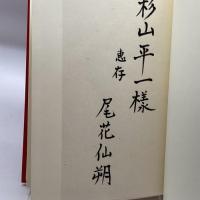 杉山平一様
恵存
尾花仙朔